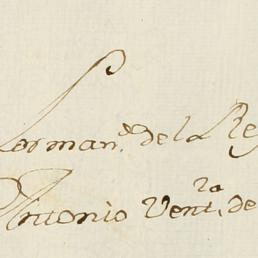 Hernan.do de la Re
Antonio Vent.ra de